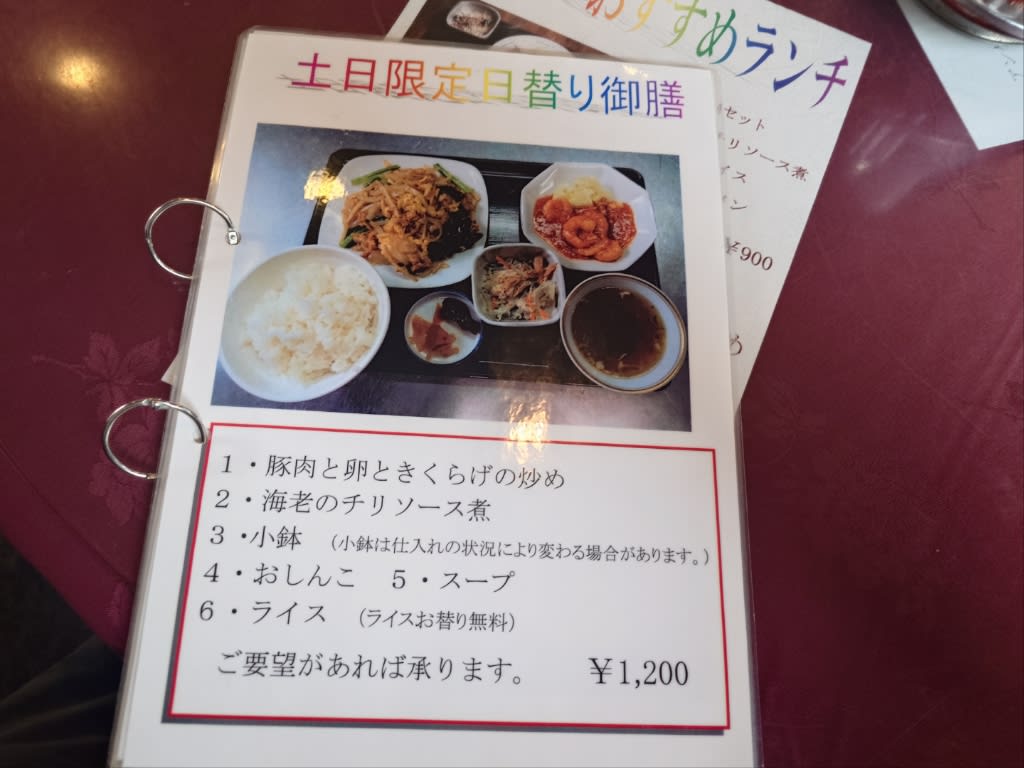 土日限定日替り御膳
1・豚肉と卵ときくらげの炒め
2・海老のチリソース煮
3・小鉢 (小鉢は仕入れの状況により変わる場合があります。)
4・おしんこ 5・スープ
6・ライス (ライスお替り無料)
ご要望があれば承ります。 ¥1,200
おすすめランチ
セット
リソース煮
イス
¥900